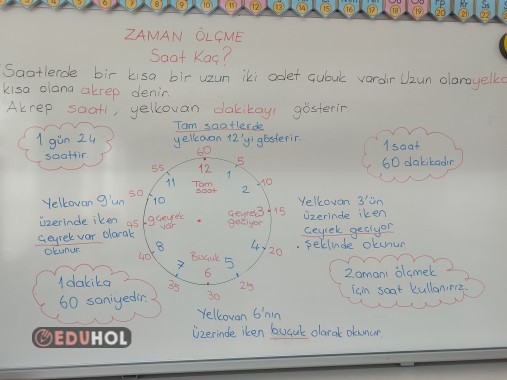 ZAMAN ÖLÇME
Saat Kaç?
Saatlerde bir kısa bir uzun iki adet çubuk vardır. Uzun olana yelko
kısa olana akrep denir.
Akrep saati, yelkovan dakikayı gösterir
1 gün 24
saattir.
Tam saatlerde
yelkovan 12'yi gösterir.
1 saat
60 dakikadır.
60
55 5
12
11 1
Tam
saat
50 10
10 2
Yelkovan 9'un
üzerinde iken
çeyrek var olarak
okunur.
45 9 çeyrek
var
Çeyrek 3 15
geçiyor
Yelkovan 3'ün
üzerinde iken
çeyrek geçiyor
şeklinde okunur.
40 8
4 20
7 Buçuk 5
6
35 25
30
1 dakika
60 saniyedir.
Zamanı ölçmek
için saat kullanırız.
Yelkovan 6'nın
üzerinde iken buçuk olarak okunur.
EDUHOL